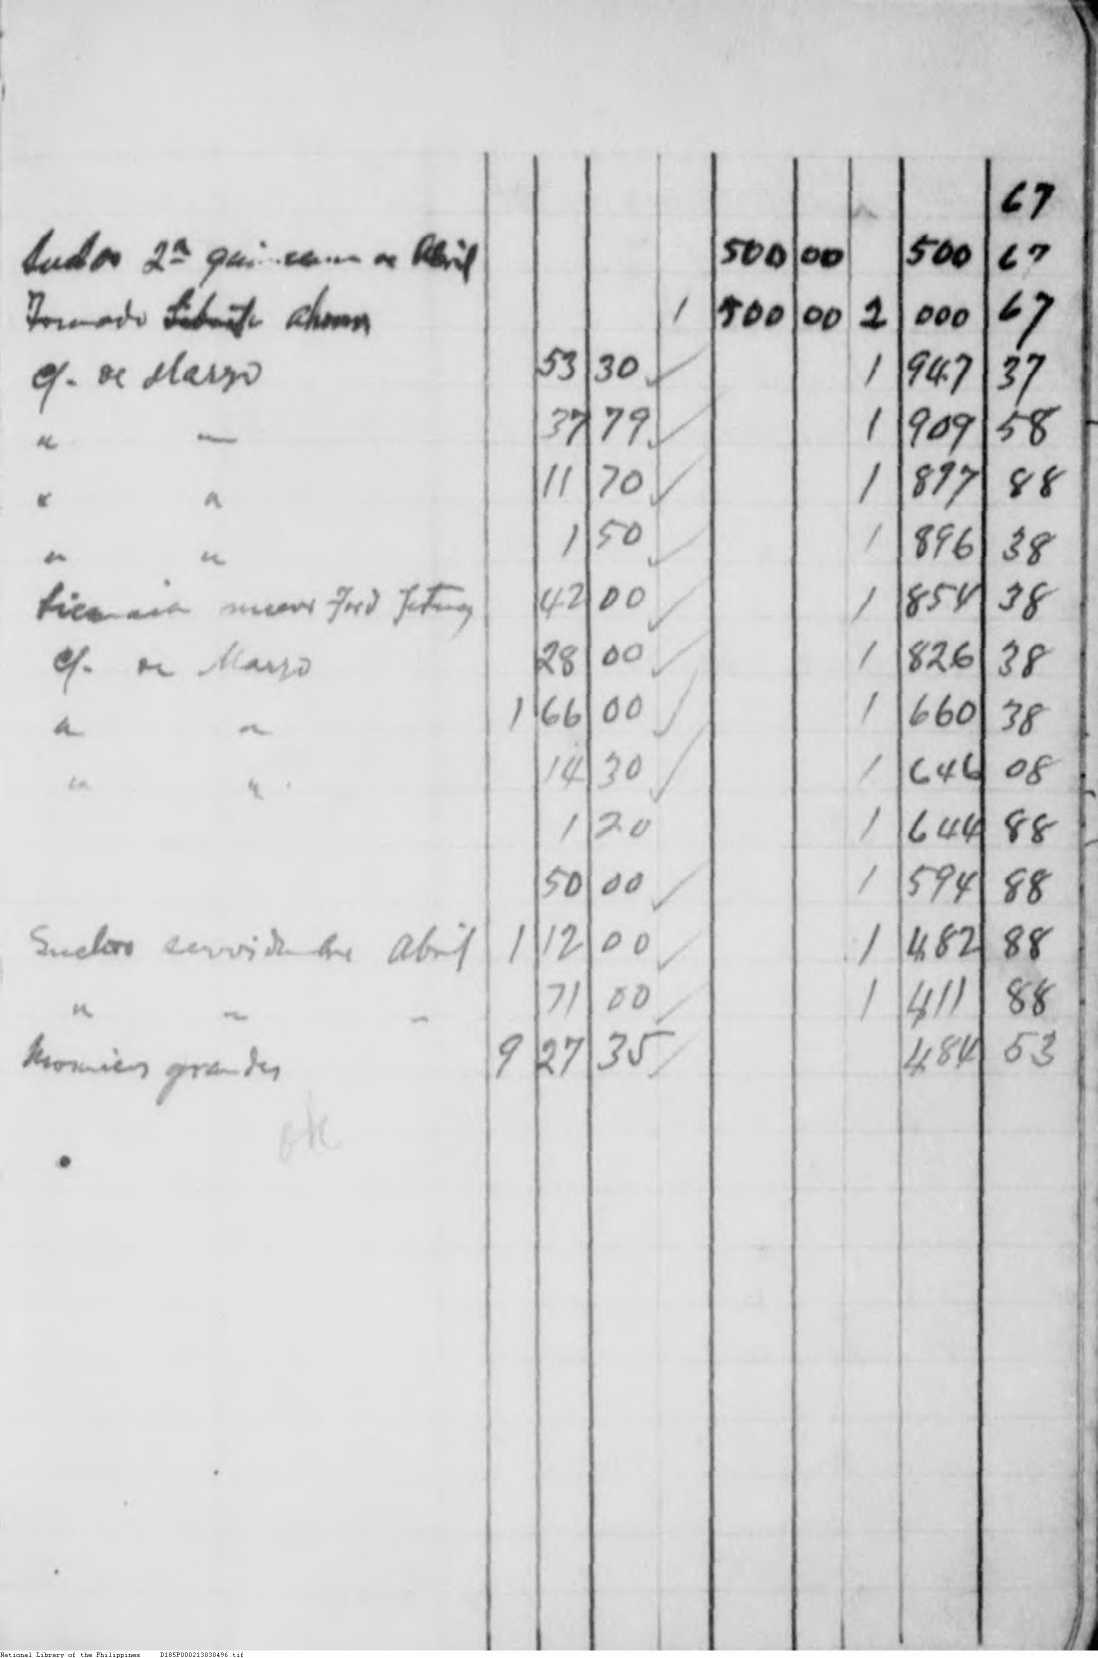 67
Sueldos 2ª quincena de Abril 500 00 500 67
Tomado Libreta ahorros 1 500 00 2 000 67
Cf. de Marzo 53 30 ✓ 1 947 37
" " 37 79 ✓ 1 909 58
" " 11 70 ✓ 1 897 88
" " 1 50 ✓ 1 896 38
Licencia nuevo Ford 42 00 ✓ 1 854 38
Cf. de Marzo 28 00 ✓ 1 826 38
" " 1 66 00 ✓ 1 660 38
" " 14 30 ✓ 1 646 08
1 20 1 644 88
50 00 ✓ 1 594 88
Sueldos servidumbre Abril 1 12 00 ✓ 1 482 88
" " " 71 00 ✓ 1 411 88
grandes 9 27 35 ✓ 484 53
ok
National Library of the Philippines D185P000213030496.tif